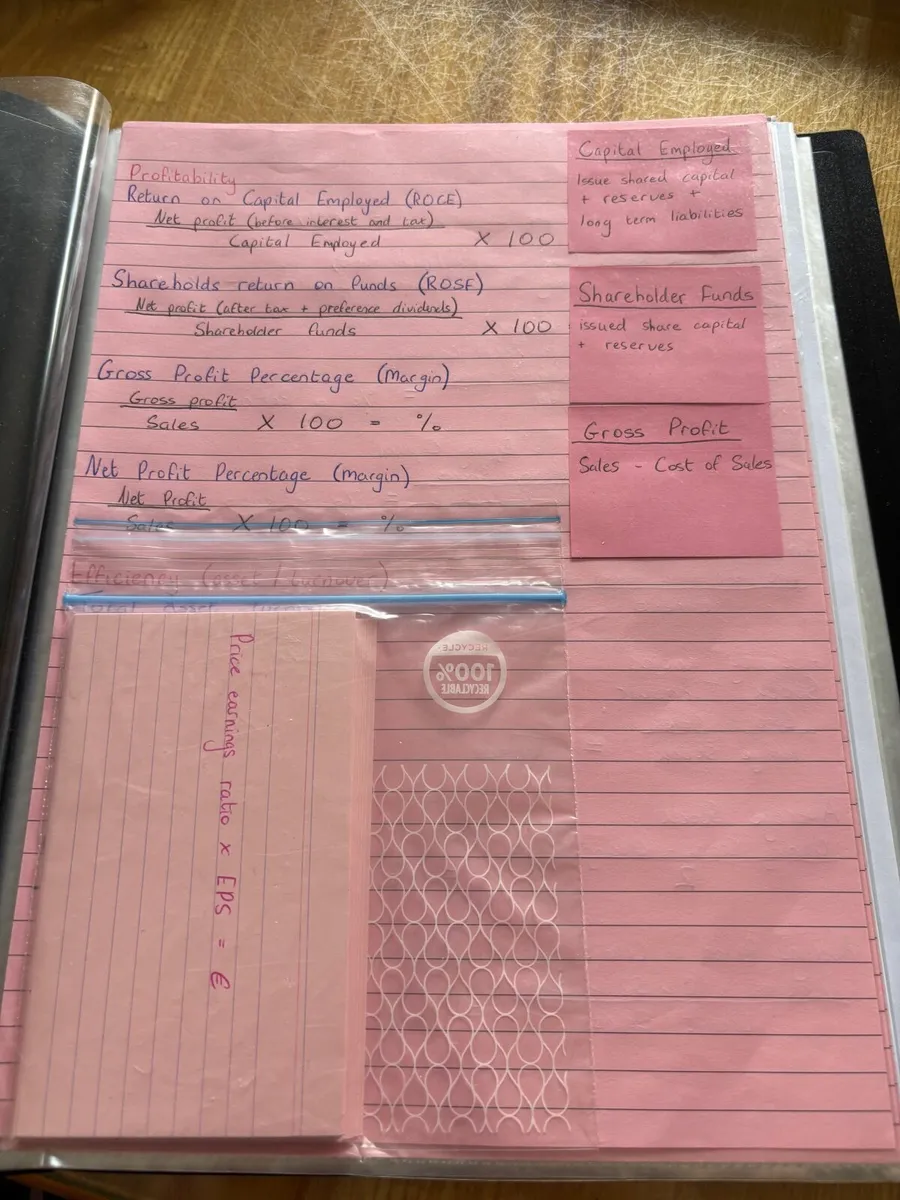 Profitability
Return on Capital Employed (ROCE)
Net profit (before interest and tax)
Capital Employed X 100
Shareholds return on funds (ROSF)
Net profit (after tax + preference dividends)
Shareholder funds X 100
Gross Profit Percentage (Margin)
Gross profit
Sales X 100 = %
Net Profit Percentage (margin)
Net Profit
Sales X 100 = %
Efficiency (asset / turnover)
Total asset
Capital Employed
Issue shared capital
+ reserves +
long term liabilities
Shareholder Funds
issued share capital
+ reserves
Gross Profit
Sales - Cost of Sales
Price earnings ratio x EPS = €
RECYCLE
100%
RECYCLABLE